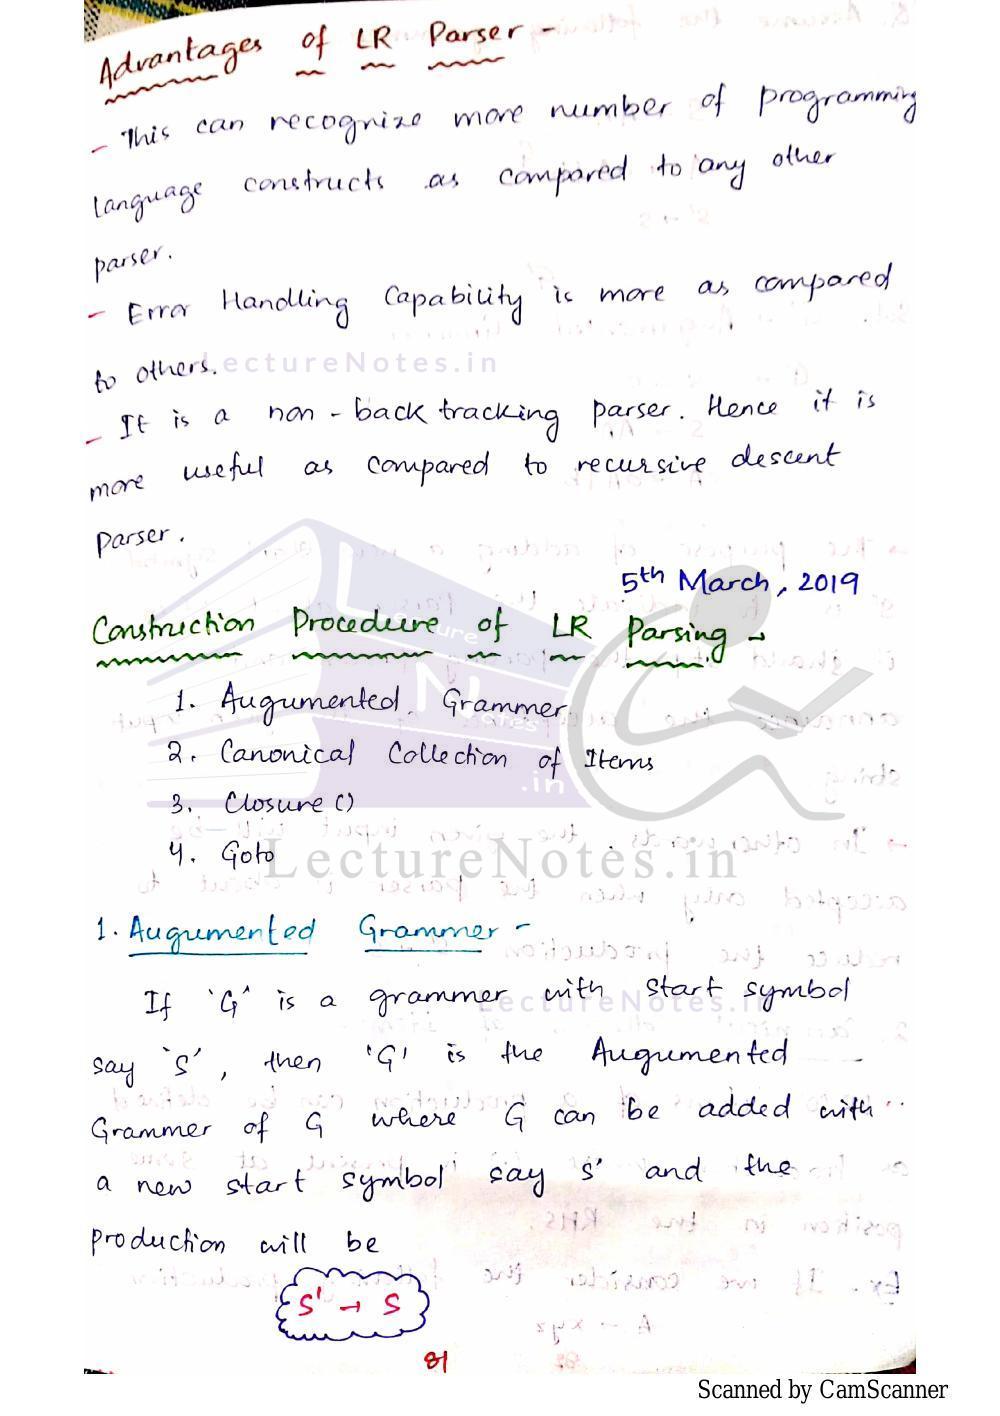 Advantages of LR Parser -
- This can recognize more number of programming
language constructs as compared to any other
parser.
- Error Handling Capability is more as compared
to others.
LectureNotes.in
- It is a non-back tracking parser. Hence it is
more useful as compared to recursive descent
parser.
5th March, 2019
Construction Procedure of LR Parsing →
1. Augumented Grammer
2. Canonical Collection of Items
3. Closure ()
4. Goto
LectureNotes.in
1. Augumented Grammer -
If 'G' is a grammer with start symbol
LectureNotes.in
say 'S', then 'G' is the Augumented
Grammer of G where G can be added with
a new start symbol say S' and the
production will be
S' → S
81
Scanned by CamScanner